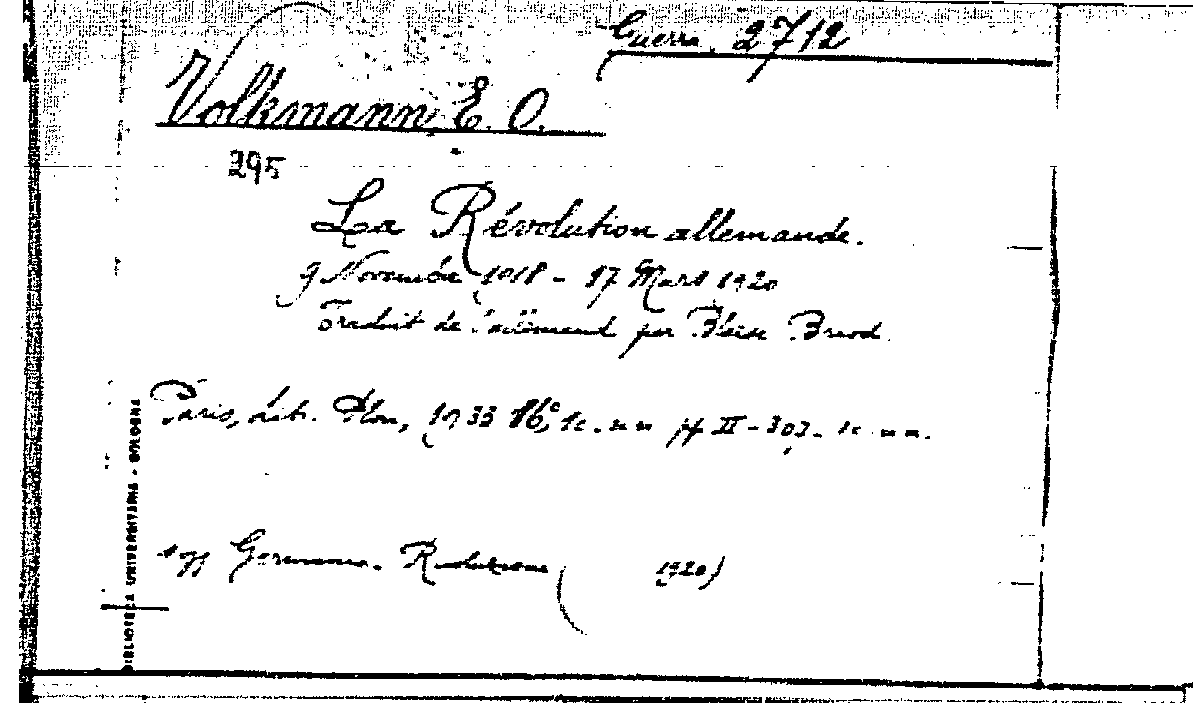 Guerra. 2712
Volkmann, E. O.
295
La Révolution allemande.
9 Novembre 1918 - 17 Mars 1920
Traduit de l'allemand par Blaise Briod.
Paris, Plon, 1933 16°, 1c. nn pp II-307. 1c. nn.
Germania. Rivoluzione ( 1920)
BIBLIOTECA UNIVERSITARIA - BOLOGNA